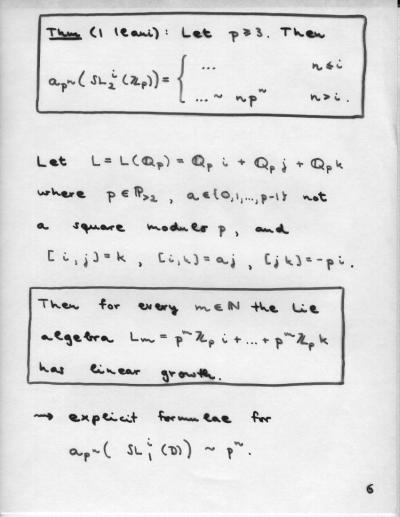 Thm (Ilani): Let p ≥ 3. Then
a_{p^n}(SL_2^i(ℤ_p)) = { ... n ≤ i
... ~ n p^n n > i.
Let L = L(ℚ_p) = ℚ_p i + ℚ_p j + ℚ_p k
where p ∈ ℙ_{>2}, a ∈ {0,1,...,p-1} not
a square modulo p, and
[i,j] = k, [i,k] = aj, [jk] = -pi.
Then for every m ∈ ℕ the Lie
algebra L_m = p^m ℤ_p i + ... + p^m ℤ_p k
has linear growth.
⇝ explicit formulae for
a_{p^n}(SL_1^i(D)) ~ p^n.
6